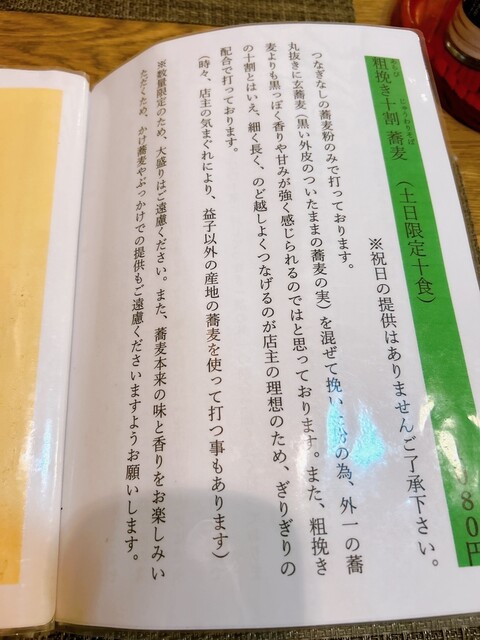 粗挽き十割蕎麦 (土日限定十食)
あらび じゅうわりそば
80円
※祝日の提供はありませんご了承下さい。
つなぎなしの蕎麦粉のみで打っております。
丸抜きに玄蕎麦(黒い外皮のついたままの蕎麦の実)を混ぜて挽いた粉の為、外一の蕎
麦よりも黒っぽく香りや甘みが強く感じられるのではと思っております。また、粗挽き
の十割とはいえ、細く長く、のど越しよくつなげるのが店主の理想のため、ぎりぎりの
配合で打っております。
(時々、店主の気まぐれにより、益子以外の産地の蕎麦を使って打つ事もあります)
※数量限定のため、大盛りはご遠慮ください。また、蕎麦本来の味と香りをお楽しみい
ただくため、かけ蕎麦やぶっかけでの提供もご遠慮くださいますようお願いします。